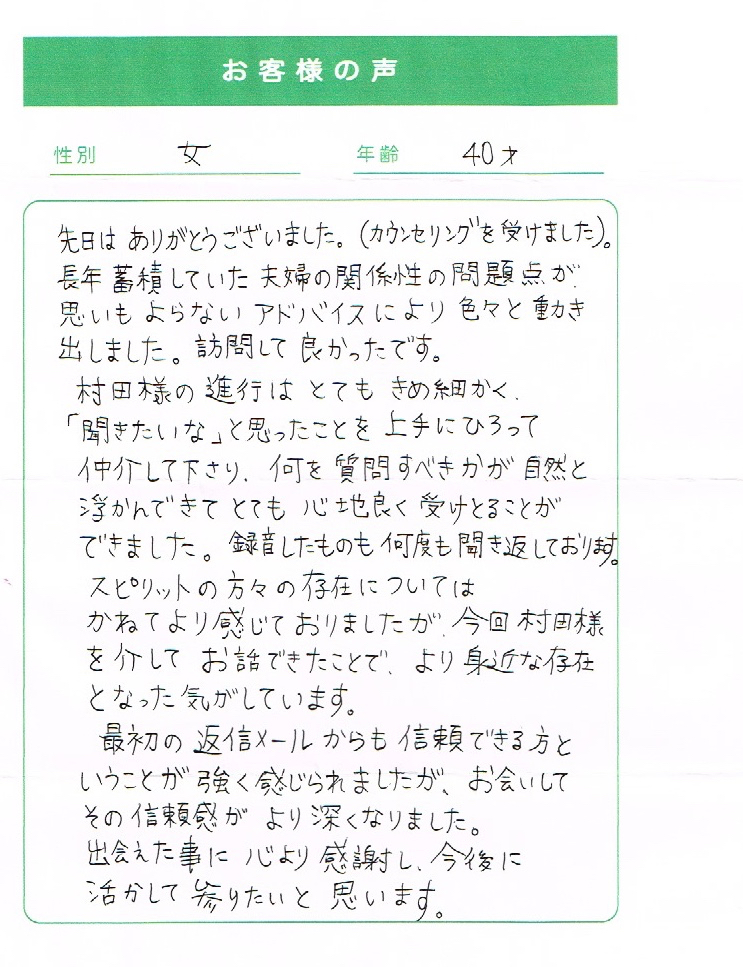 お客様の声
性別 女 年齢 40才
先日は ありがとうございました。(カウンセリングを受けました)。
長年 蓄積していた 夫婦の関係性の問題点が、
思いも よらない アドバイスに より 色々と 動き
出しました。訪問して 良かったです。
村田様の 進行は とても きめ細かく、
「聞きたいな」と思ったことを 上手にひろって
仲介して下さり、何を 質問すべきかが 自然と
浮かんできて とても 心地良く 受けとることが
できました。録音したものも 何度も 聞き返しております。
スピリットの 方々の 存在については
かねてより 感じて おりましたが、今回 村田様
を 介して お話できたことで、より 身近な存在
となった 気がしています。
最初の 返信メールからも 信頼できる方と
いうことが 強く 感じられましたが、お会いして
その 信頼感が より 深くなりました。
出会えた事に 心より 感謝し、今後に
活かして 参りたいと 思います。